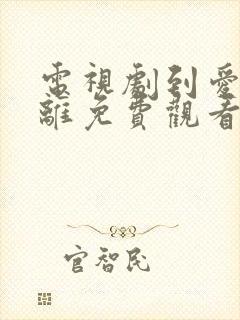 電視劇到愛
離免費觀看
官智民